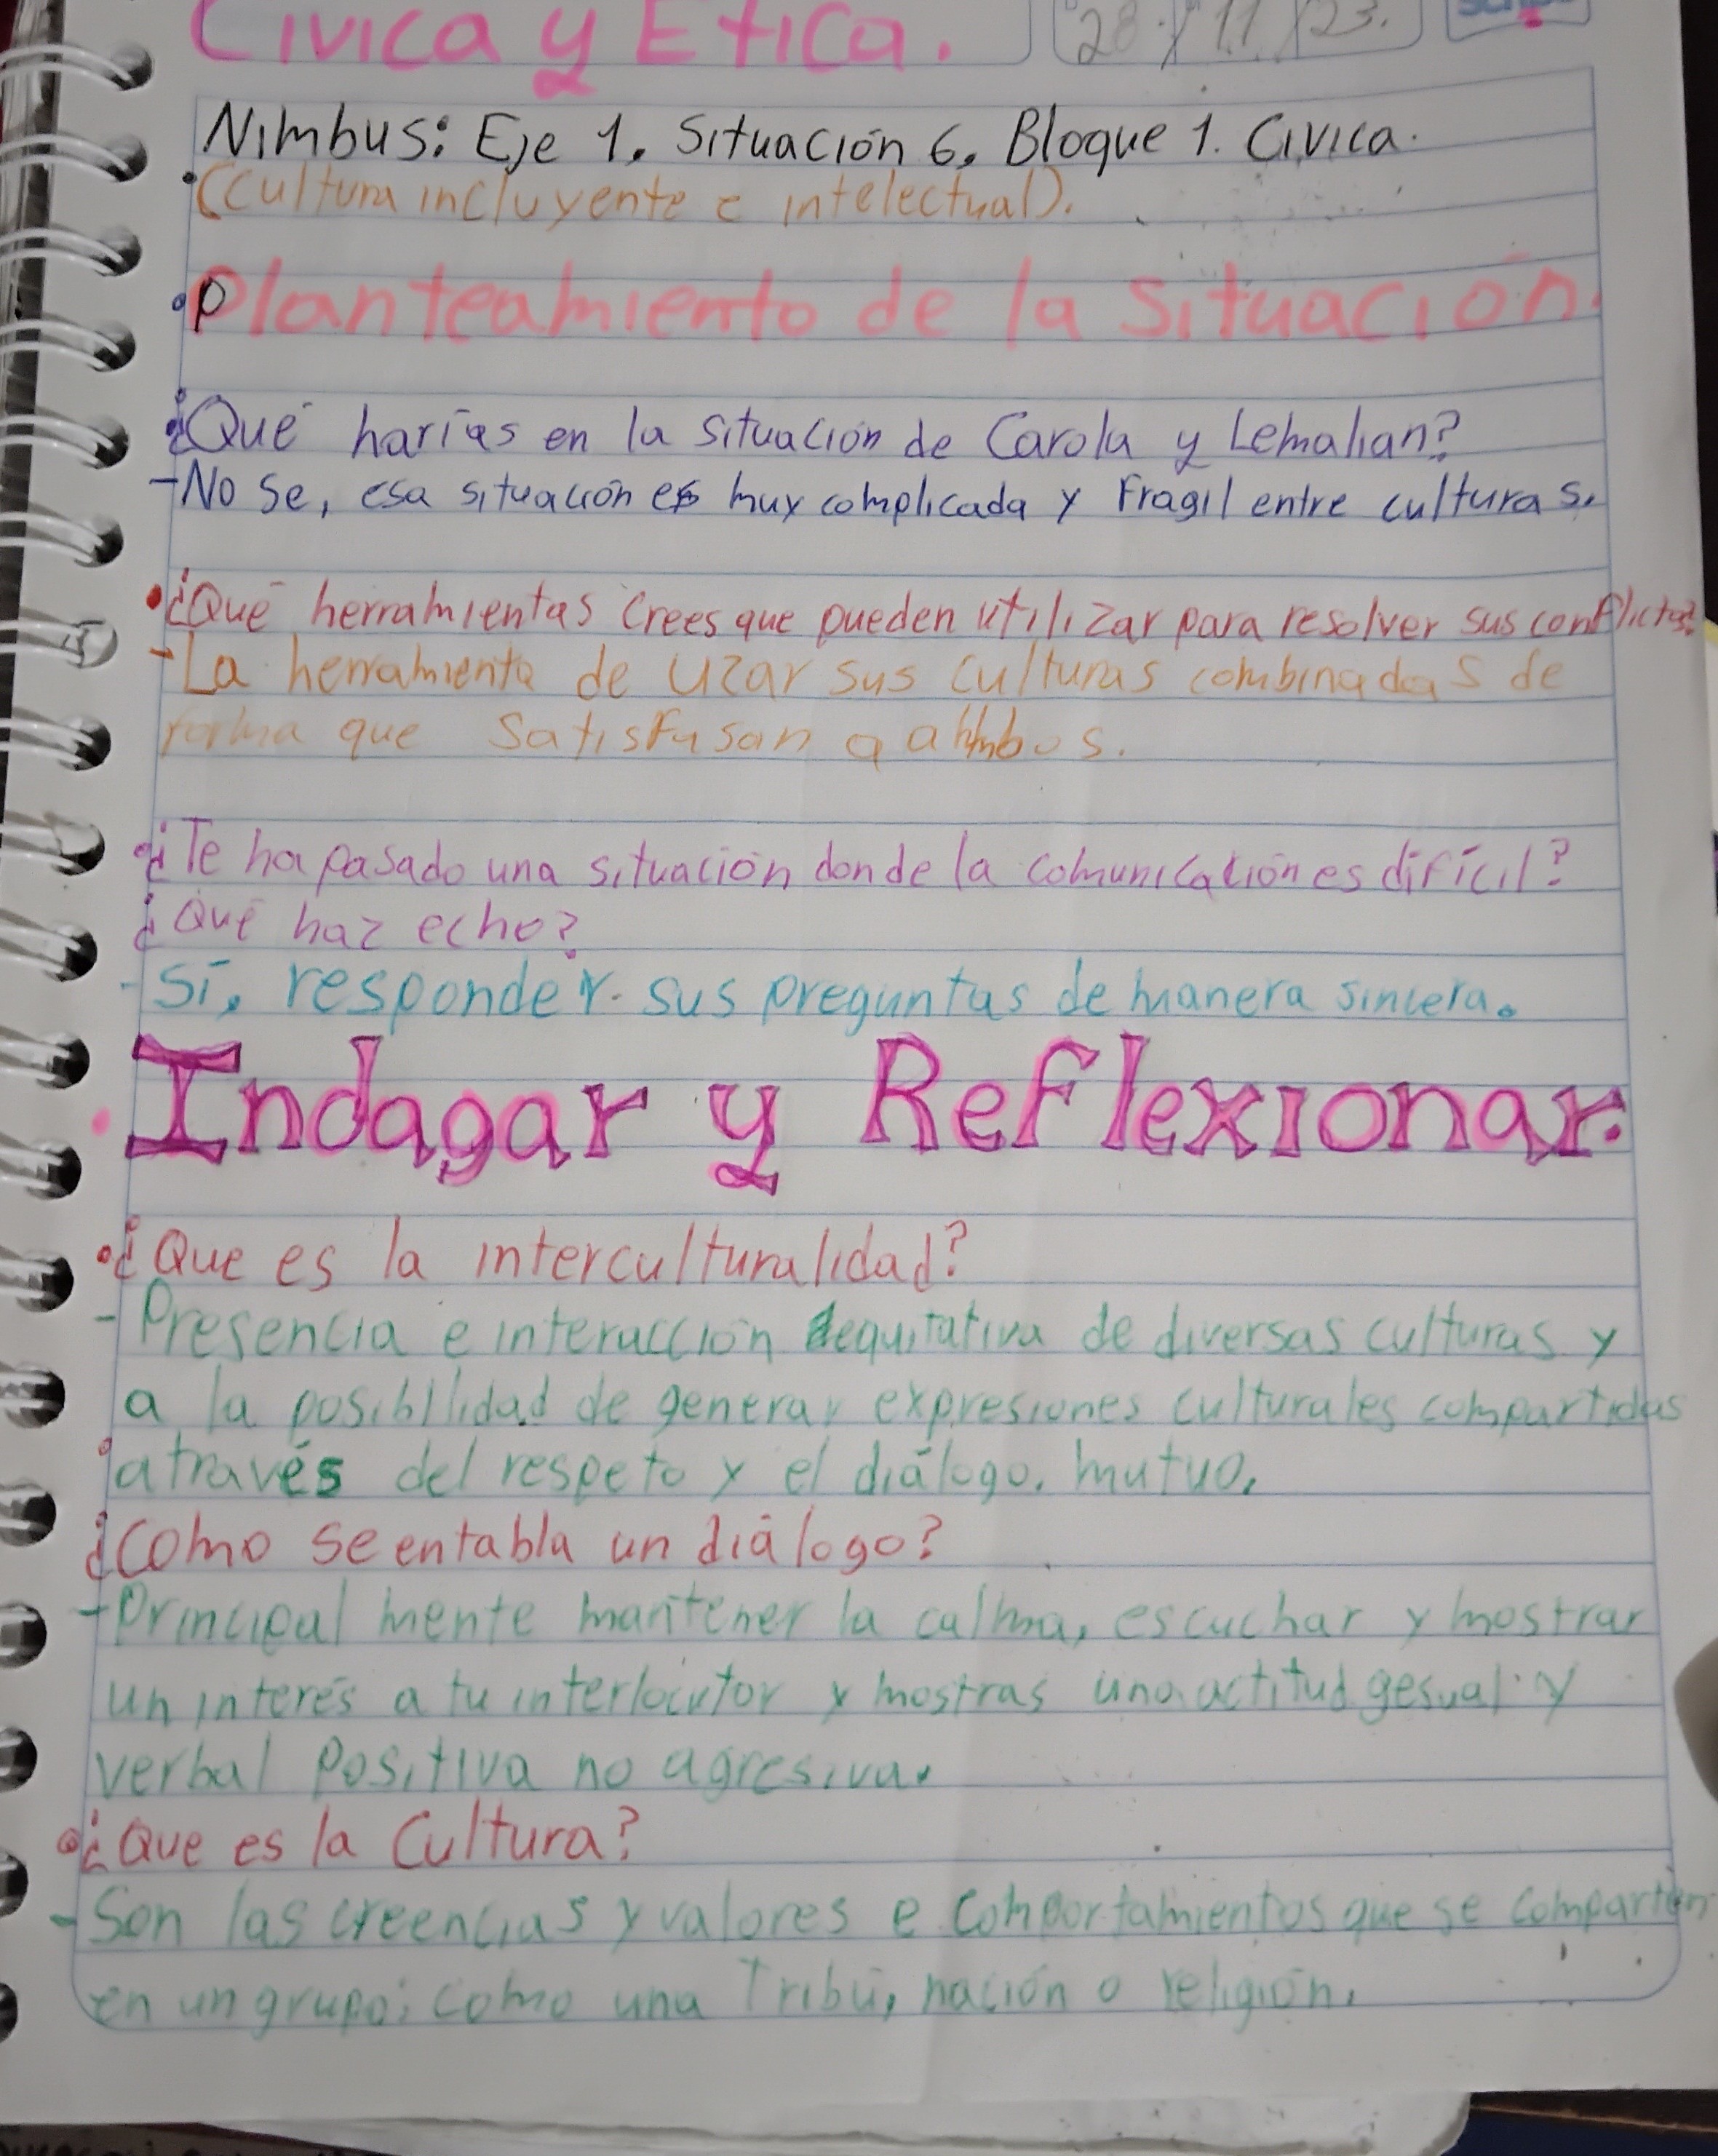 Civica y Etica.
28 / 11 / 23.
Nimbus: Eje 1. Situación 6. Bloque 1. Civica.
(Cultura incluyente e intelectual).
Planteamiento de la situación.
¿Qué harías en la situación de Carola y Lemalian?
-No se, esa situación es muy complicada y Fragil entre culturas.
¿Qué herramientas crees que pueden utilizar para resolver sus conflictos?
-La herramienta de uzar sus culturas combinadas de
forma que satisfasan a ambos.
¿Te ha pasado una situación donde la comunicación es difícil?
¿Qué haz echo?
-Sí, responder sus preguntas de manera sincera.
Indagar y Reflexionar.
¿Que es la interculturalidad?
-Presencia e interacción equitativa de diversas culturas y
a la posibilidad de generar expresiones culturales compartidas
através del respeto y el diálogo. mutuo.
¿Como se entabla un diálogo?
-Principal mente mantener la calma, escuchar y mostrar
un interés a tu interlocutor y mostras una actitud gesual y
verbal positiva no agresiva.
¿Que es la Cultura?
-Son las creencias y valores e comportamientos que se comparten
en un grupo; como una Tribú, nación o religión.